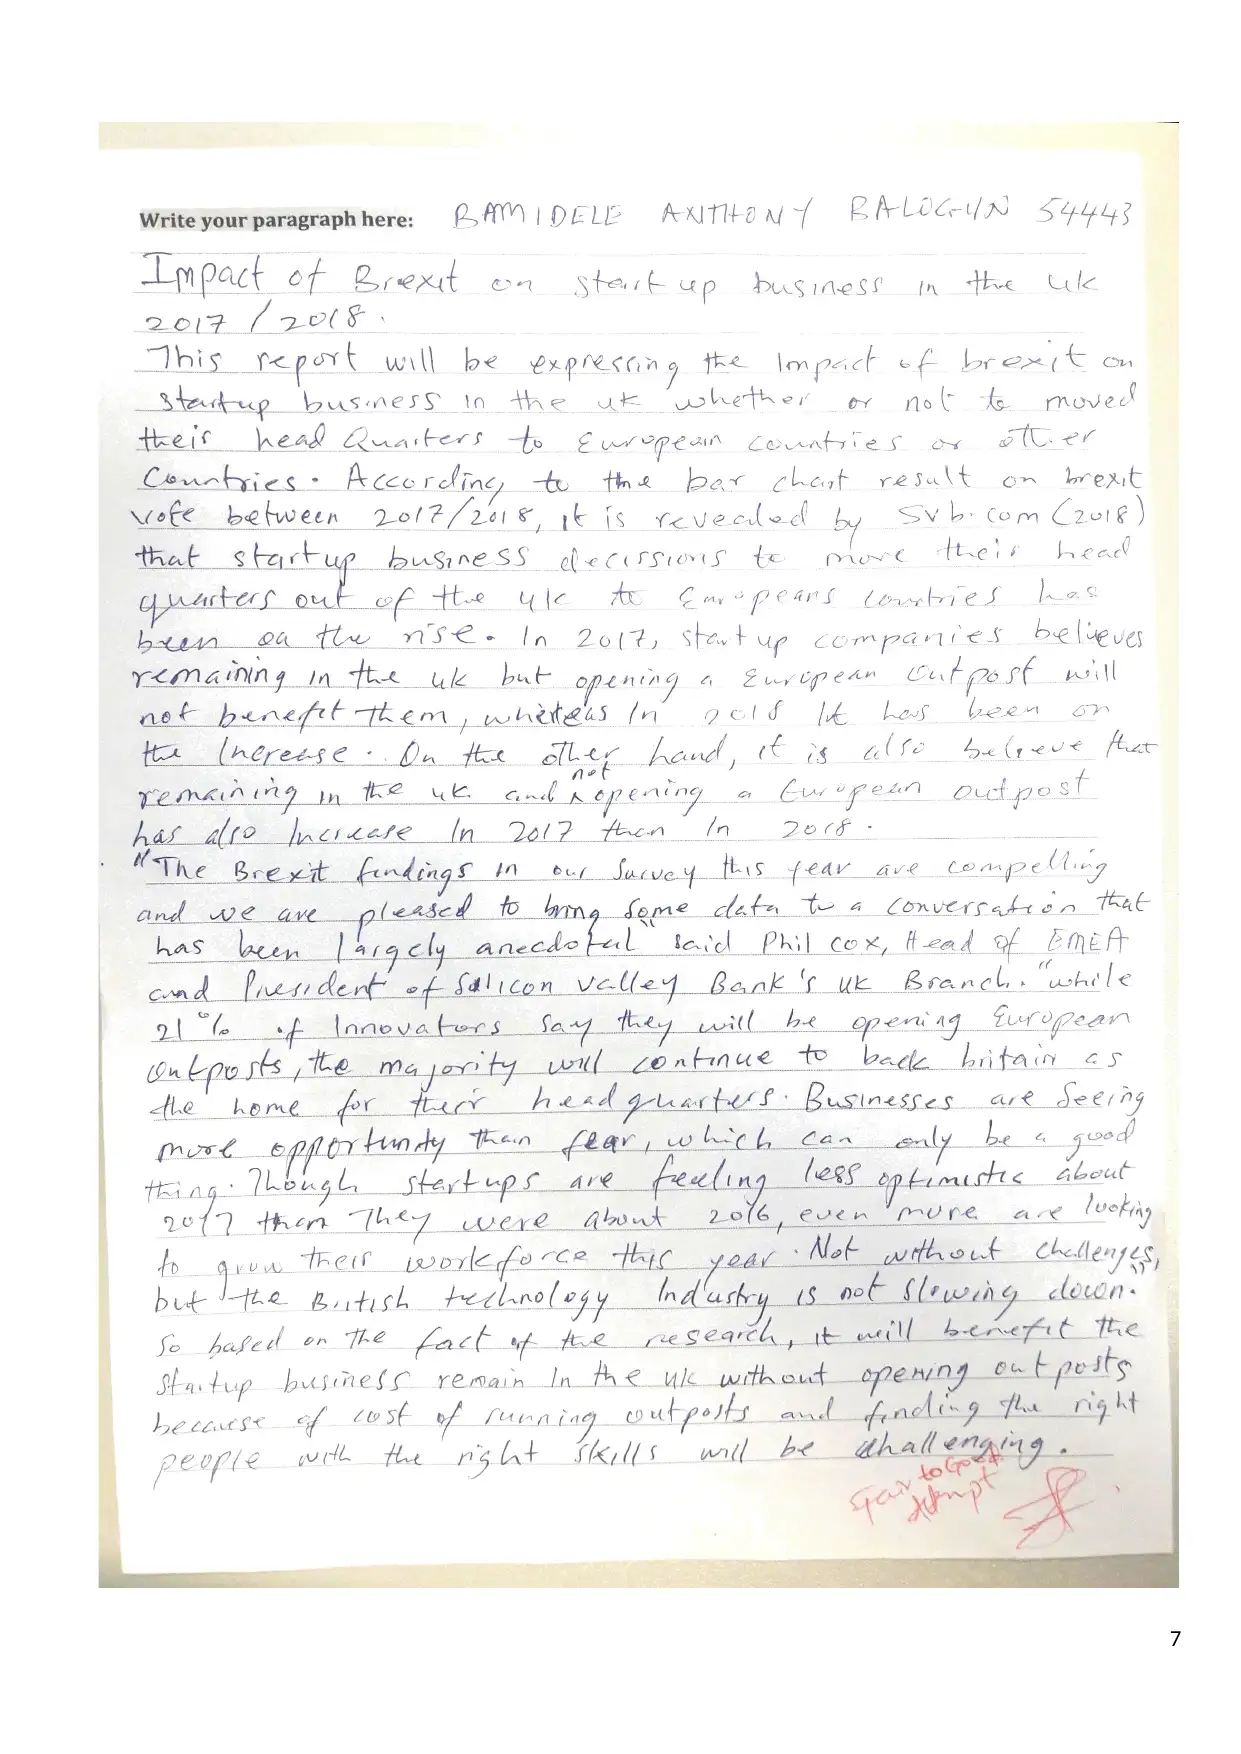 Write your paragraph here: BAMIDELE ANTHONY BALOGUN 54443
Impact of Brexit on start up business in the uk
2017 / 2018.
This report will be expressing the Impact of brexit on
startup business in the uk whether or not to moved
their head Quarters to European countries or other
Countries. According to the bar chart result on brexit
vote between 2017/2018, it is revealed by svb.com (2018)
that startup business decissions to move their head
quarters out of the uk to Europeans countries has
been on the rise. In 2017, start up companies believes
remaining in the uk but opening a European Outpost will
not benefit them, whereas In 2018 It has been on
the Increase. On the other hand, it is also believe that
remaining in the uk and not opening a European outpost
has also Increase In 2017 than In 2018.
"The Brexit findings in our Survey this year are compelling
and we are pleased to bring some data to a conversation that
has been largely anecdotal" said Phil cox, Head of EMEA
and President of Silicon Valley Bank's UK Branch. "while
21% of Innovators say they will be opening European
Outposts, the majority will continue to back britain as
the home for their headquarters. Businesses are Seeing
more opportunity than fear, which can only be a good
thing. Though startups are feeling less optimistic about
2017 than They were about 2016, even more are looking
to grow their workforce this year. Not without challenges,
but the British technology Industry is not slowing down."
So based on the fact of the research, it will benefit the
startup business remain In the uk without opening outposts
because of cost of running outposts and finding the right
people with the right skills will be challenging.
Fair to Good
Attempt
7